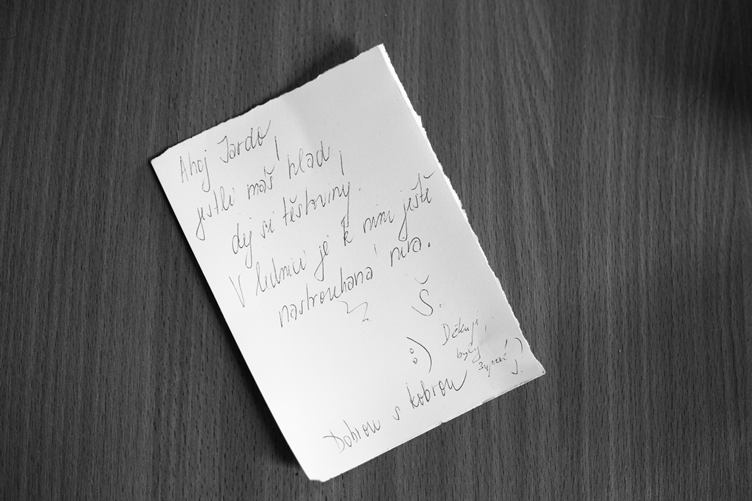 Ahoj Jardo,
jestli máš hlad,
dej si těstoviny.
V lednici je k nim ještě
nastrouhaná niva.
Š.
:)
Dobrou s kobrou
Děkuji,
byly
J.